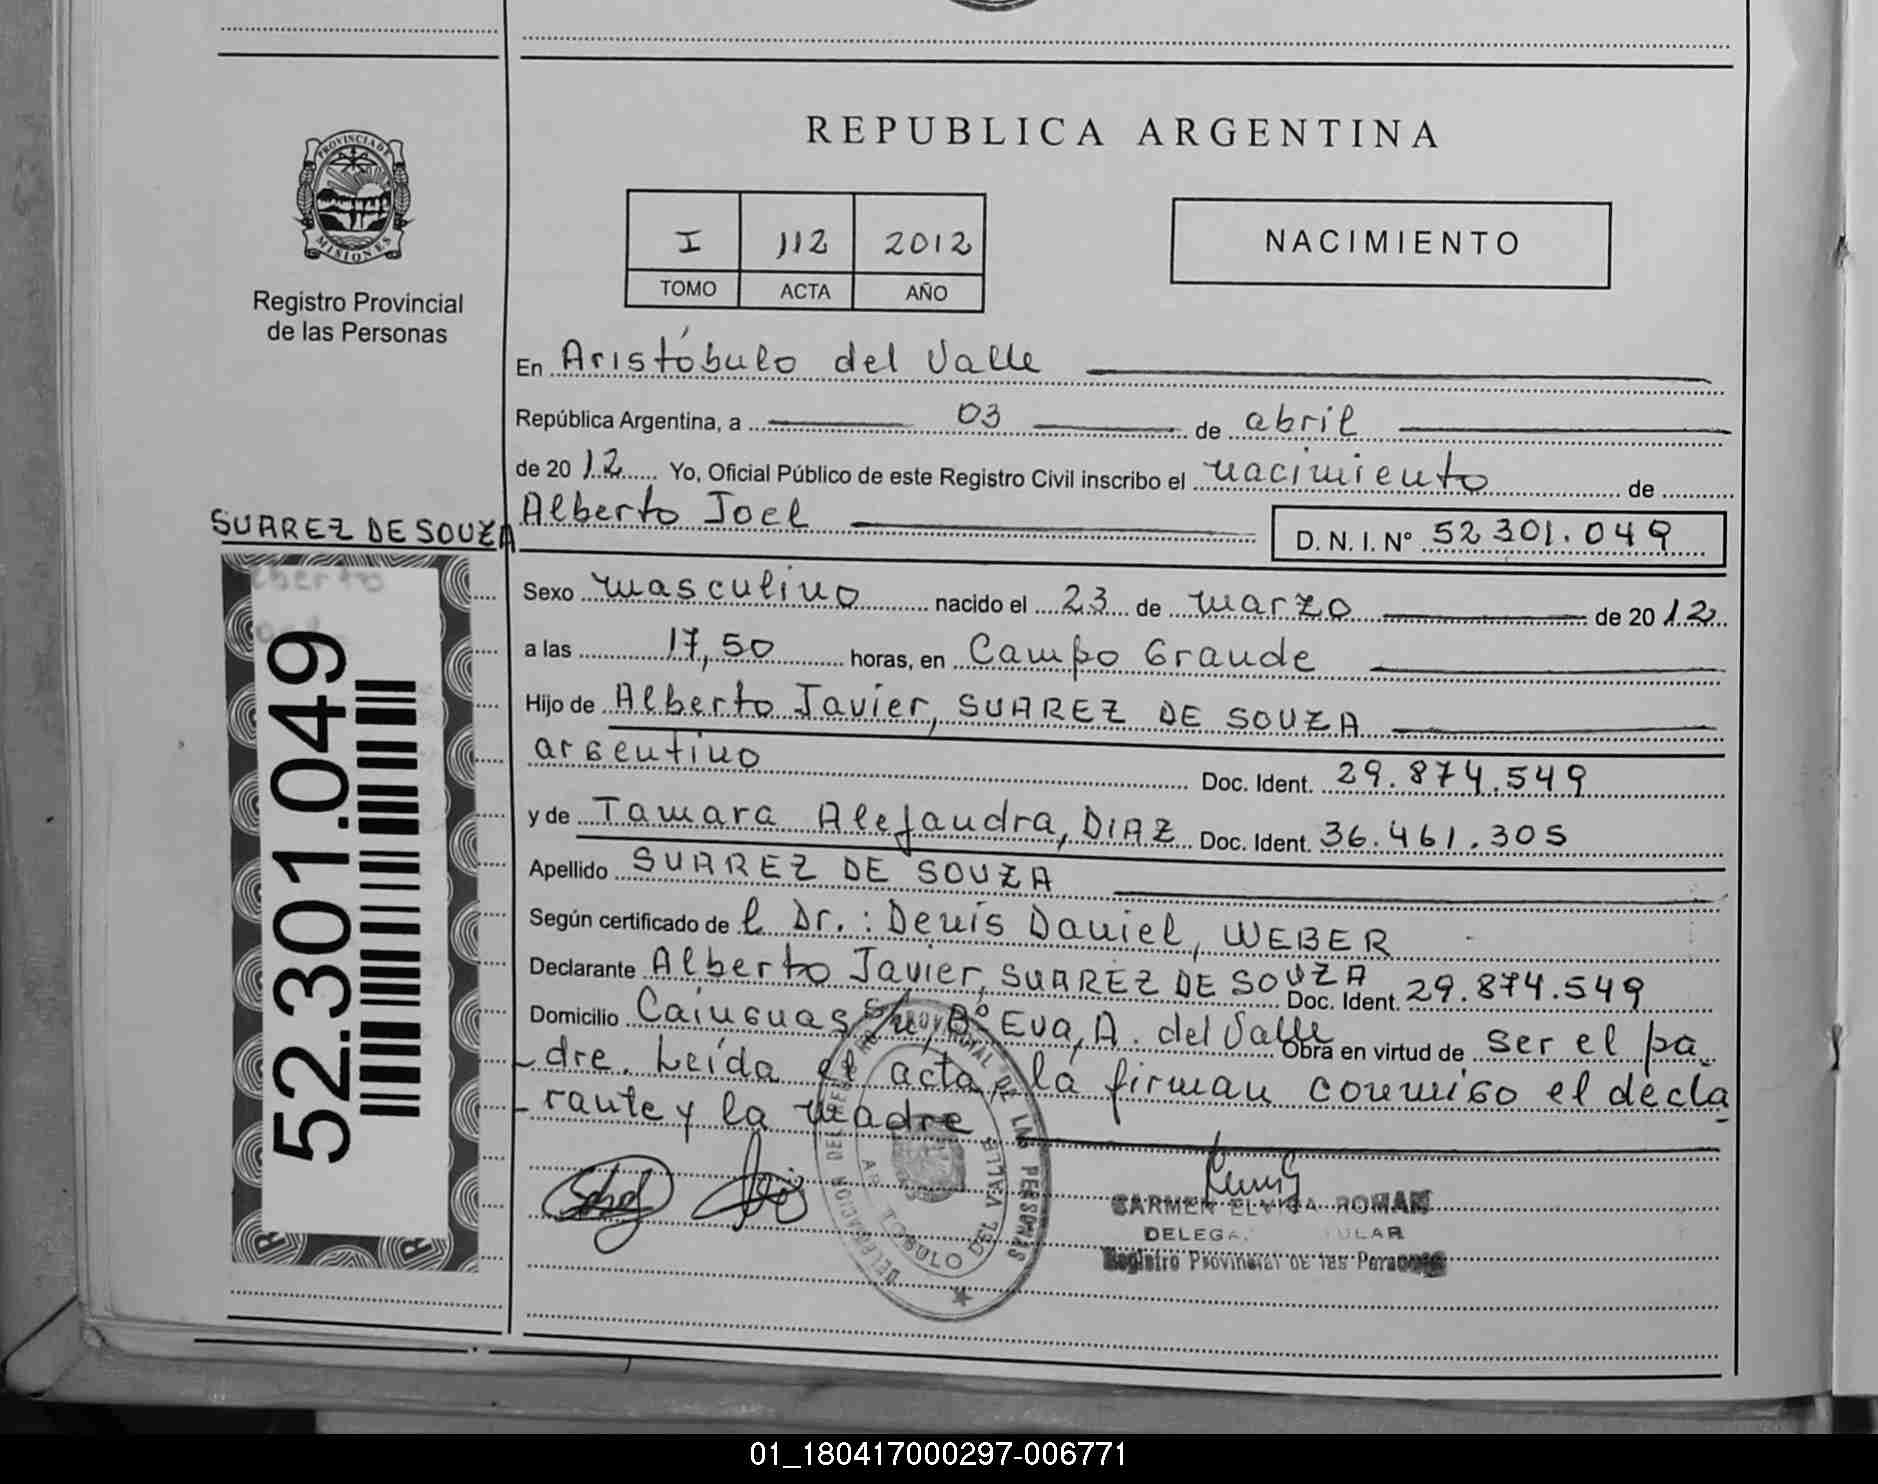 PROVINCIA DE
MISIONES
Registro Provincial
de las Personas
SUAREZ DE SOUZA
52.301.049
REPUBLICA ARGENTINA
I 112 2012
TOMO ACTA AÑO
NACIMIENTO
En Aristóbulo del Valle
República Argentina, a 03 de abril
de 20 12 Yo, Oficial Público de este Registro Civil inscribo el nacimiento de
Alberto Joel D. N. I. N° 52 301.049
Sexo masculino nacido el 23 de marzo de 20 12
a las 17,50 horas, en Campo Grande
Hijo de Alberto Javier, SUAREZ DE SOUZA
argentino Doc. Ident. 29.874.549
y de Tamara Alejandra, DIAZ Doc. Ident. 36.461.305
Apellido SUAREZ DE SOUZA
Según certificado de l Dr.: Denis Daniel, WEBER
Declarante Alberto Javier, SUAREZ DE SOUZA Doc. Ident. 29.874.549
Domicilio Cainguas s/n, B° Eva, A. del Valle Obra en virtud de ser el pa
dre. Leída el acta, la firman conmigo el decla
rante y la madre
CARMEN ELVIRA ROMAN
Registro Provincial de las Personas
01_180417000297-006771